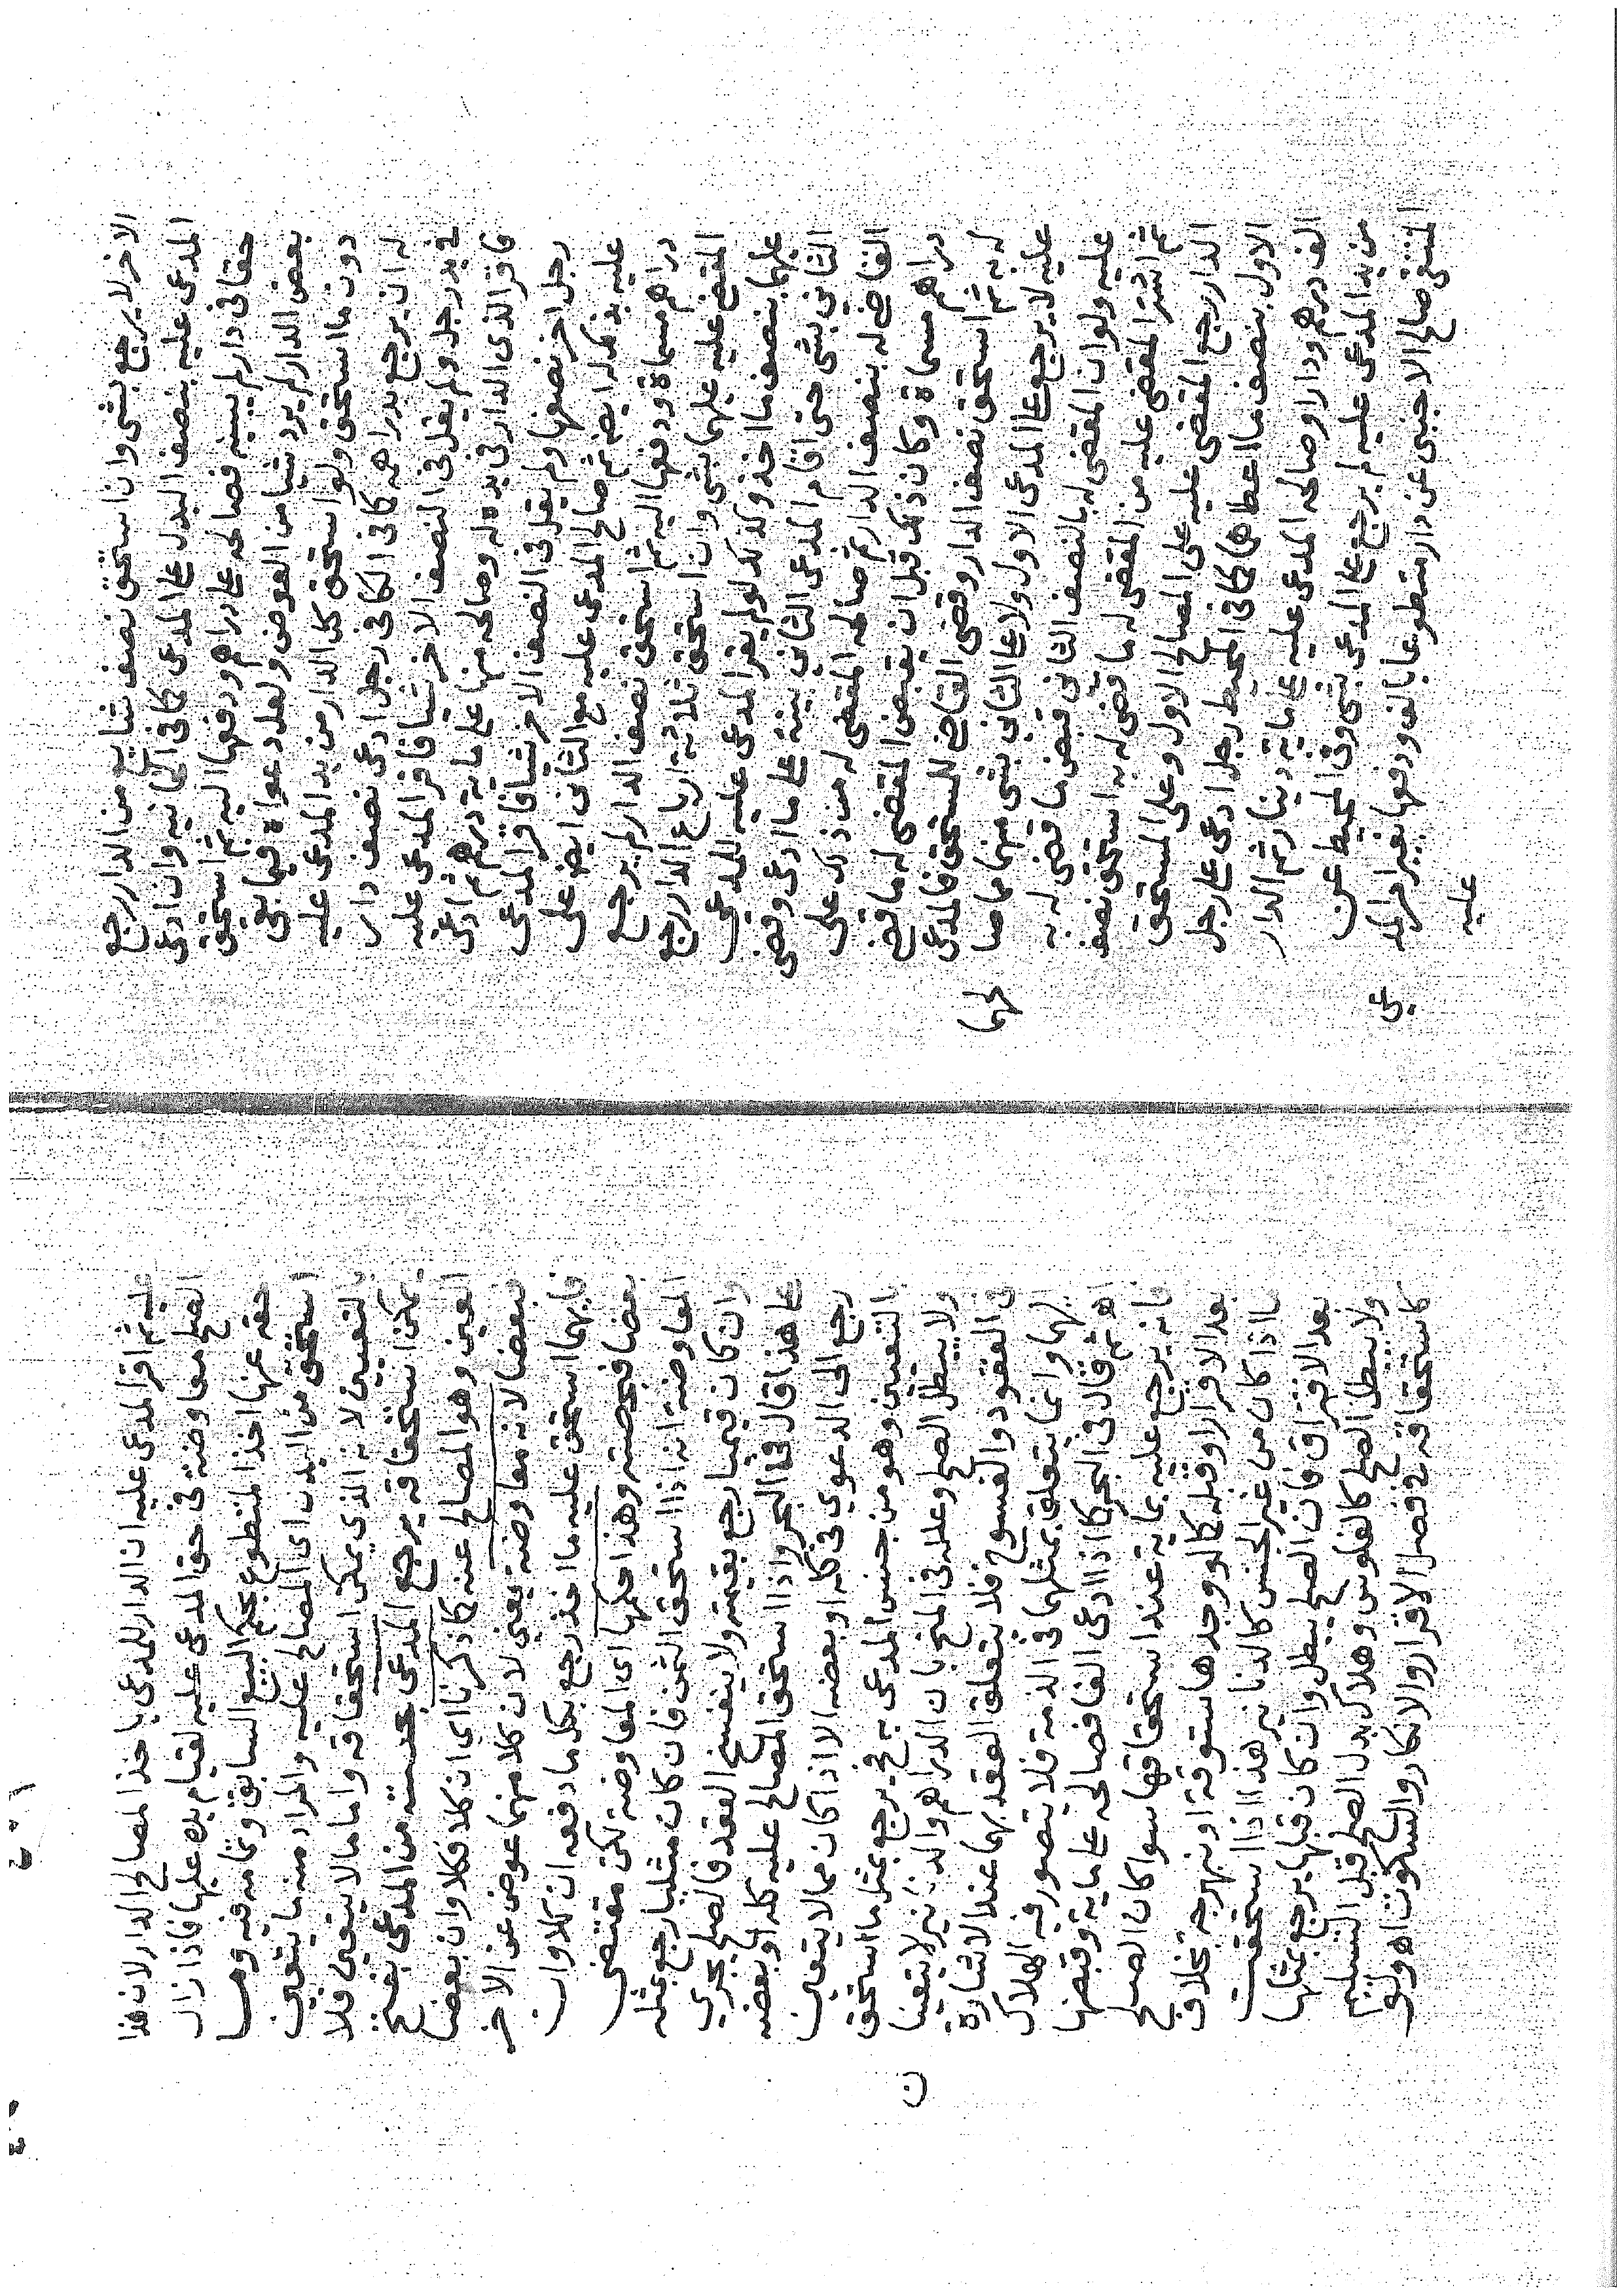 الاخر لا يرجع بشى وان استحق نصف شايع من الدار رجع
المدعى عليه بنصف البدل على المدعى كما فى الخانيه وان ادعى
حقا فى دار لم يبينه فصالحه على دراهم ودفعها اليه ثم استحق
بعض الدار لم يرد شيا من العوض ولعل دعواه فيما بقى
دون ما استحق ولو استحق كل الدار من يد المدعى عليه
له ان يرجع بدراهمه كما فى الكافى رجل ادعى نصف دار
فى يد رجل ولم يقل فى النصف الاخر شيا فاقر المدعى عليه
فاقر الذى الدار فى يده له وصالحه منها على ماية درهم ثم ادعى
رجل اخر نصفها ولم يقل فى النصف الاخر شيا فاقر المدعى
عليه بذلك له ايضا ثم صالح المدعى عليه مع الثانى ايضا على
دراهم مسماة ودفعها اليه ثم استحق نصف الدار لم يرجع
المقضى عليه عليهما بشى وان استحق ثلاثة ارباع الدار رجع
عليهما بنصف ما اخذ وكذلك لو لم يقر المدعى عليه للمدعى
الثانى بشى حتى اقام المدعى الثانى بينة على ما ادعى وقضى
القاضى له بنصف الدار ثم صالحه المقضى له من ذلك على
دراهم مسماة وكان ذلك قبل ان يقبض المقضى له ما قضى
له به ثم استحق نصف الدار وقضى القاضى للمستحق فالمدعى
عليه لا يرجع على المدعى الاول ولا على الثانى بشى منهما مما صالحهما
عليه ولو ان المقضى له بالنصف الثانى قبض ما قضى له به
ثم اشترا المقضى عليه من المقضى له ما قضى له به استحق نصف
الدار رجع المقضى عليه على المصالح الاول وعلى المستحق
الاول بنصف ما اعطاهما كما فى المحيط رجل ادعى على رجل
الف درهم ودارا وصالحه المدعى عليه على ماية دينار ثم الدار
من يد المدعى عليه لم يرجع على المدعى بشى وفى المحيط عن
المنتقى صالح الاجنبى عن دار متطوعا بالف ودفعها بغير امر المدعى
عليه
عليه ثم اقر المدعى عليه ان الدار للمدعى ياخذ المصالح الدار لان هذا
الصلح معاوضة فى حق المدعى عليه لقيام يده عليها فاذا زال
حقه عنها اخذ المتطوع بحكم البيع السابق وتمامه فيه وما
استحق من البدل اى المصالح عليه والمراد منه ما يتعين
بالتعيين لانه الذى يمكن استحقاقه واما ما لا يتعين فلا
يمكن استحقاقه يرجع المدعى بحصته من المدعى بفتح
العين وهو المصالح عنه كما ذكرنا اى ان كلا فكلا وان بعضا
فبعضا لانه معاوضة يعنى لان كلا منهما عوض عن الاخر
فايهما استحق عليه ما اخذ رجع بكل ما دفعه ان كلا وان
بعضا فبحصته وهذا حكمها اى المعاوضة لكن مقتضى
المعاوضة انه اذا استحق الثمن فان كان مثليا رجع بمثله
وان كان قيميا رجع بقيمته ولا ينفسخ العقد فالصلح يجرى
على هذا قال فى البحر واذا استحق المصالح عليه كله او بعضه
رجع الى الدعوى فى كله او بعضه الا اذا كان مما لا يتعين
بالتعيين وهو من جنس المدعى به فح يرجع بمثل ما استحق
ولا يبطل الصلح وعلله فى المنح بان الدراهم والدنانير لا يتعينان
فى العقود والفسوخ فلا يتعلق العقد بهما عند الاشارة
بهما وانما يتعلق بمثلهما فى الذمة فلا يتصور فيه الهلاك
اهـ ثم قال فى البحر كما اذا ادعى الفا فصالحه على ماية وقبضها
فانه يرجع عليه بماية عند استحقاقها سوا كان الصلح
بعد الاقرار او قبله كما لو وجدها ستوقة او نبهرجة بخلاف
ما اذا كان من غير الجنس كالدنانير هذا اذا استحقت
بعد الافتراق فان الصلح يبطل وان كان قبلها يرجع بمثلها
ولا يبطل الصلح كالفلوس وهلاك بدل الصلح قبل التسليم
كاستحقاقه فى فصل الاقرار والانكار والسكوت اهـ ولو